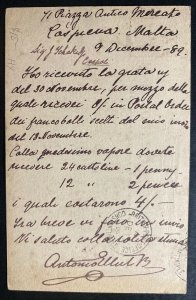 71 Piazza Antico Mercato
Cospicua Malta
9 Decembre - 89.
Ho ricevuto la grata
del 30 Novembre, per mezzo della
quale ricevei 8/- in Postal Order
dei francobolli scelti dal mio invio
del 13 Novembre.
Colla medesimo vapore dovete
ricevere 24 cartoline - 1 penny
12 " 2 pence
i quali costarono 4/-
Fra breve vi farò un invio
Vi saluto colla solita stima
Antonio